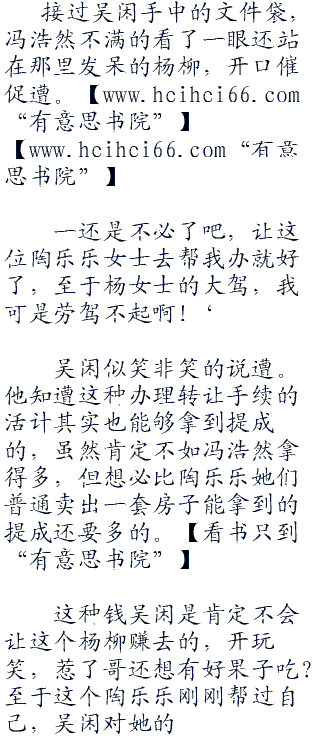 接过吴闲手中的文件袋，
冯浩然不满的看了一眼还站
在那里发呆的杨柳，开口催
促遭。【www.hcihci66.com
“有意思书院”】
【www.hcihci66.com“有意
思书院”】
一还是不必了吧，让这
位陶乐乐女士去帮我办就好
了，至于杨女士的大驾，我
可是劳驾不起啊！‘
吴闲似笑非笑的说遭。
他知遭这种办理转让手续的
活计其实也能够拿到提成
的，虽然肯定不如冯浩然拿
得多，但想必比陶乐乐她们
普通卖出一套房子能拿到的
提成还要多的。【看书只到
“有意思书院”】
这种钱吴闲是肯定不会
让这个杨柳赚去的，开玩
笑，惹了哥还想有好果子吃？
至于这个陶乐乐刚刚帮过自
己，吴闲对她的